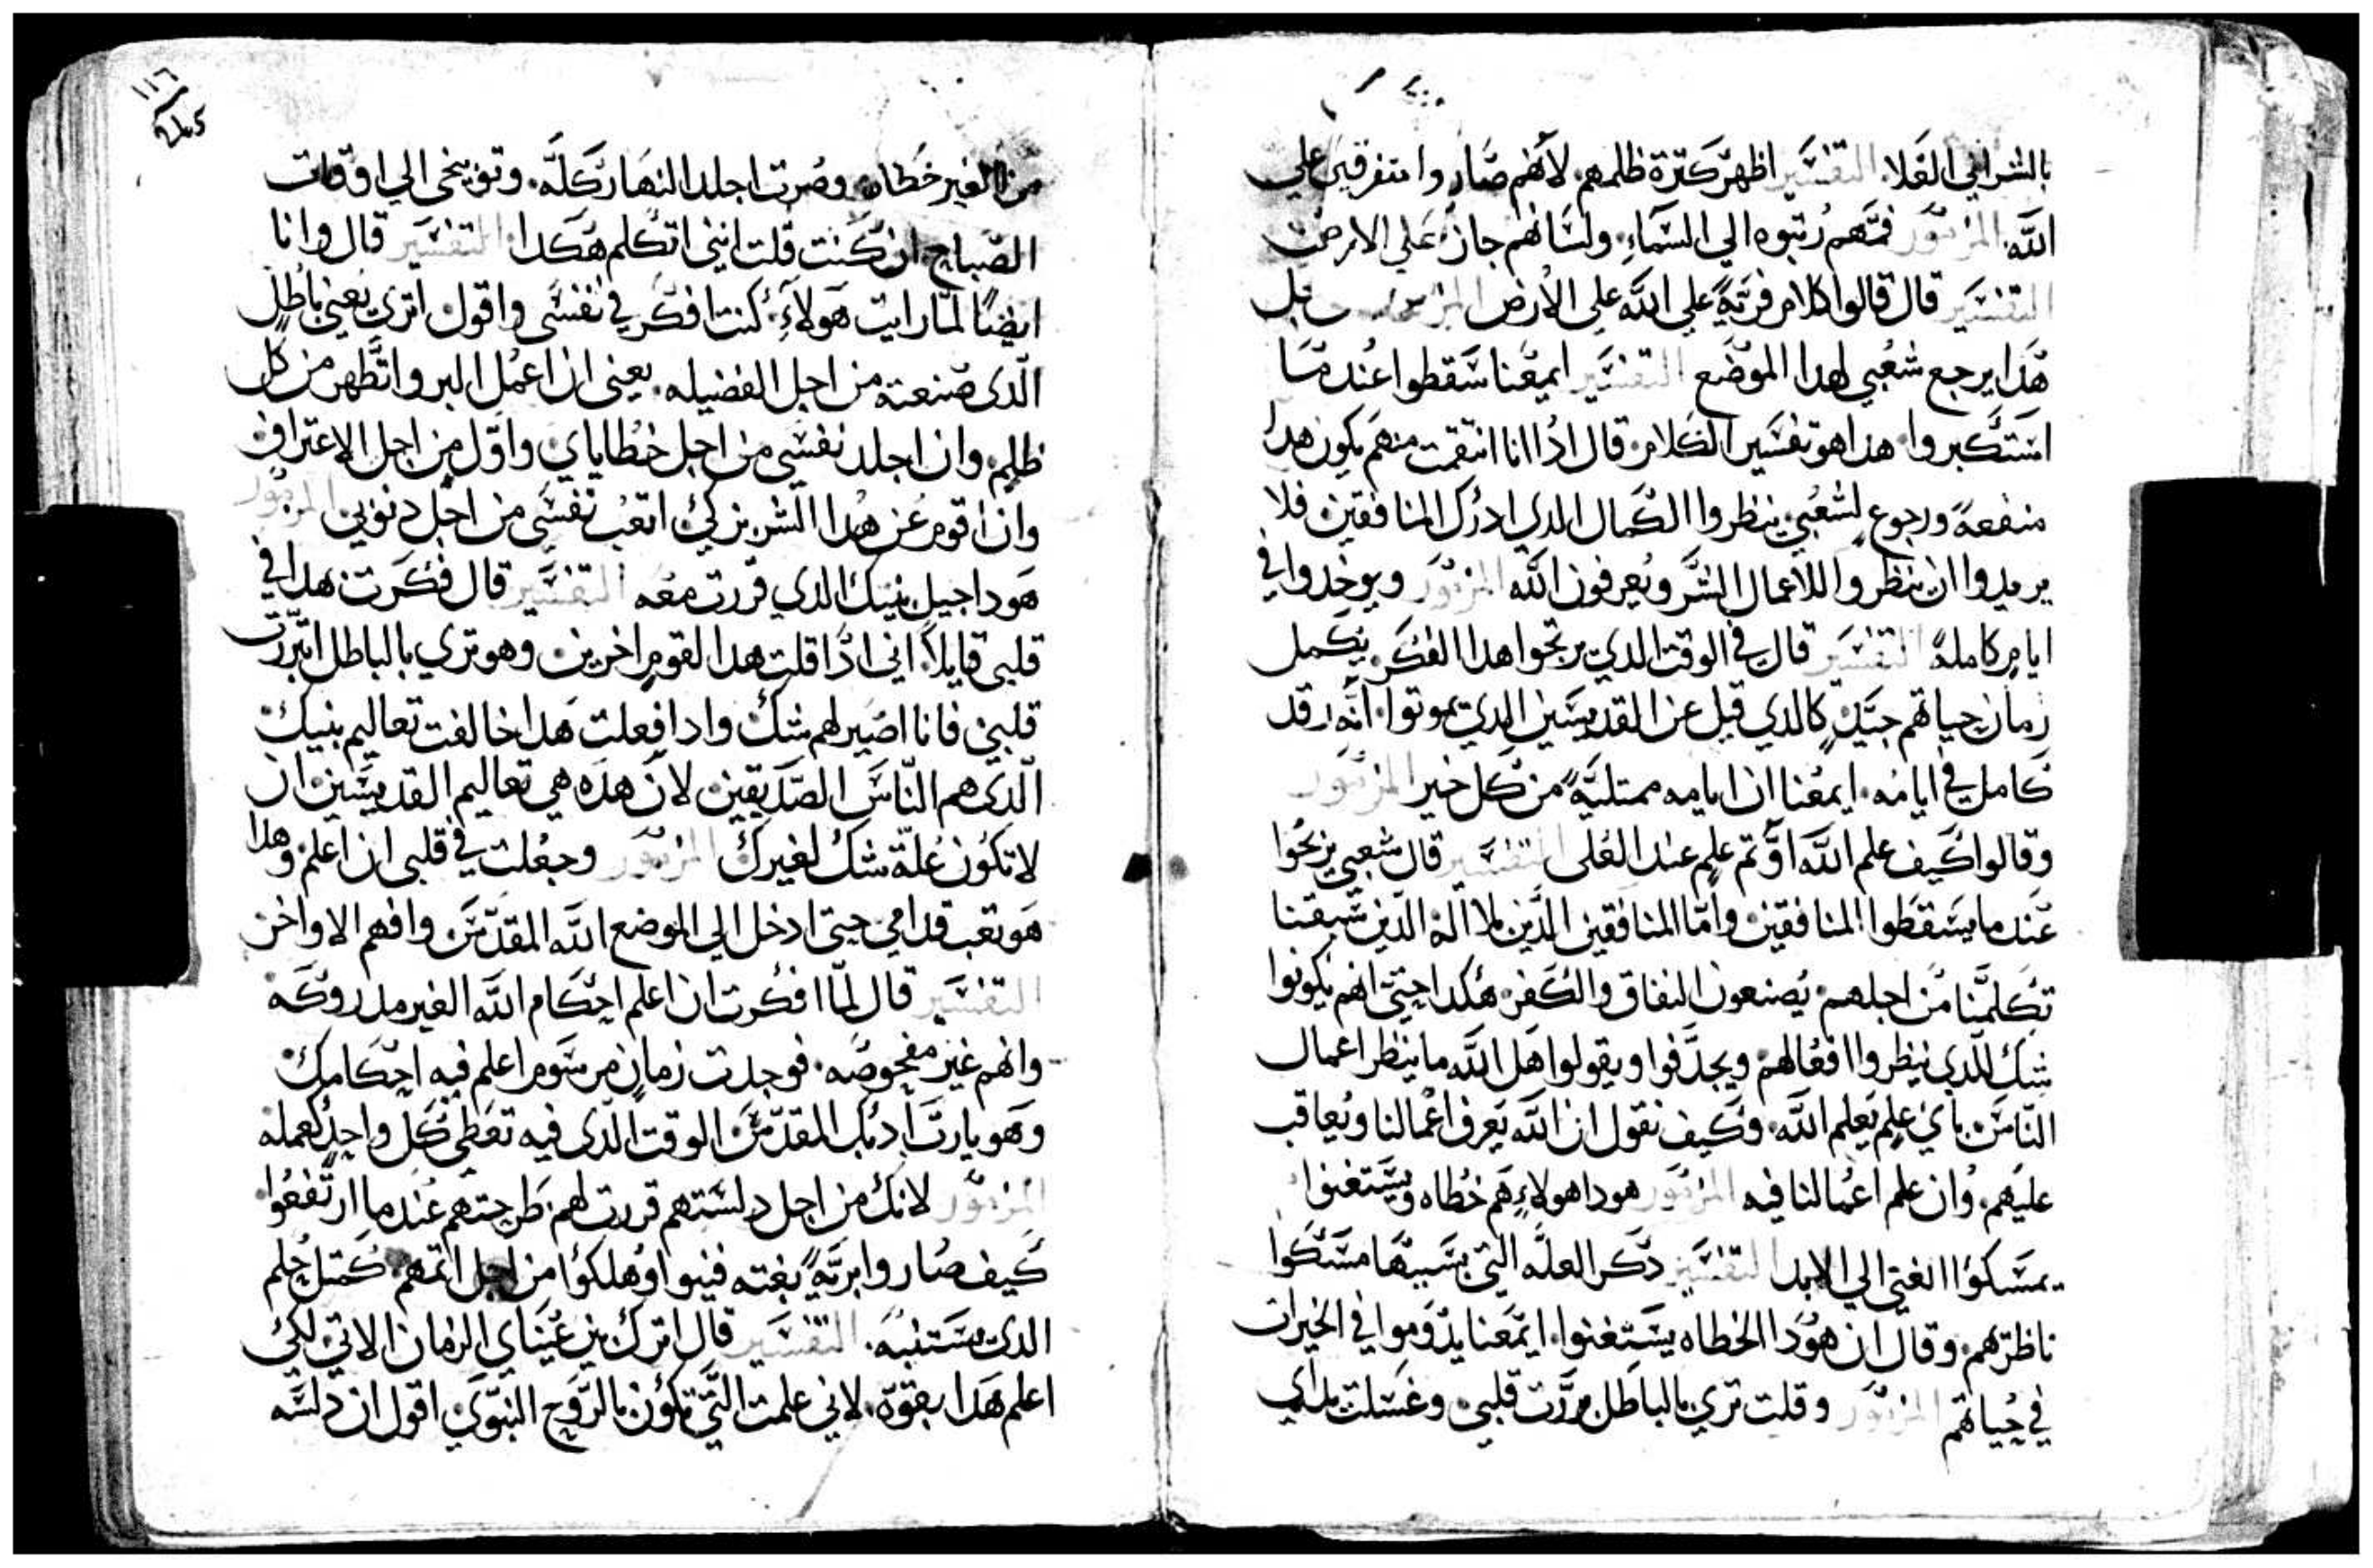 بالشر في العَلا. التفسَير اظهر كترة ظلمهم. لأنهم صَاروا متفرقين علي
الله. المزمور فمّهم رُتبوه الي السَماءِ. ولسَانهم جاز عَلي الارض
التفسَير قال قالوا كلام فريَةً علي اللَّه علي الأرض المزمور
هَدا يرجع شعُبي لهدا الموضع التفسَير ايمعَنا سَقطوا عُندمَا
استَكبروا. هدا هو تفسَير الكلام. قال ادُا انا انتقمت منهم يكون هدا
منفعةً ورجوع لشعُبي. ينظروا الكمال الدي ادرُك المنافقين فلا
يريدوا ان ينظروا للاعمال الشَر ويُعرفون اللَّه المزمور ويوخدوا في
ايامٍ كاملةً التفسَير قال في الوقت الدي يربحوا هدا الفكر. يُكمل
زمان حياتهم جيّدٍ كالدي قيل عن القديسَين الدي يموتوا. انّه رقد
كامل في ايامُه. ايمعُنا ان ايامه ممتليَةً من كَل خير المزمور
وقالوا كَيف علم اللَّه اوَتم علم عند العُلى التفسَير قال شعبي يربحُوا
عَندما يسَقطوا المنافقين. وامّا المنافقين الَّدين لا الَه الّدين سَبقنا
تكَلمَّنا من اجلهم. يُصنعون النفاق والكَفر. هُكدا حتي انهم يكونوا
شك للّدي ينظروا افعُالهم. ويجدَّفوا ويقولوا هَل اللَّه ما ينظر اعمال
النّاسَ. باي علِم يَعلم اللَّه. وكَيف نقول ان اللَّه يَعرف اعُمالنا ويُعاقب
عليهم. وُان علم اعُمالنا فيه المزمور هودا هولاءِ هَم خُطاه ويسَتغنوا
يمسَكوُا الغني الي الابد التفسَير دكر العلَّه التي بسَببها مسَكوا
ناظرهم. وقال ان هوُدا الخطاه يسَتغنوا. ايمَعنا يدُوموا في الخيرات
في حُياتهم المزمور وقلت تري بالباطَل برَّرت قلبي. وغسَلت يداي
من الغير خَطاه. وصُرت اجلد النهَار كَلَّه. وتوبيخي الي اوقات
الصَباح. ان كَنت قلت انيني اتكلم هكَدا. التفسَير قال وانا
ايضًا لمّا رايت هَولاَءِ. كنت افكَر في نفسَي واقول اتري يَعني باطُل
الّدى صنعته من اجل الفضيله. يعني ان اعمُل البر واتَّطهر من كل
ظلم. وان اجلد نفسَي من اجل خطاياي. واوَّل من اجل الاعتراف
وان اقوم عَن هُدا الشر بزكي. اتعبُ نفسَي من اجَل دنوبي المزمور
هَودا جيل بنيك الدي قررت معُه التفسَير قال فُكَرت هدا في
قلبي قايلاً. اني ادًا قلت هدا لقوم اخرين. وهو تري بالباطل ابرّرت
قلبي فانا اصَير لهم شك. وادا فعلت هَدا خالفت تعاليم بنيك
الّدى هم النّاسَ الصّدَيقين. لان هدَه هي تعاليم القديسَين. ان
لا تكوُن عُلّة شك لغيرك المزمور وجعُلت في قلبي ان اعلم. وهدا
هَو تعب قدامي حتي ادخل الي الموضع اللَّه المقدَّسَ. وافهم الاواخر
التفسَير قال لمّا افكَرت ان اعلم احكَام اللَّه الغير مدروكَه
وانهم غيَر مفحوصَه. فوجدت زمان مرسَوم اعلم فيه احكَامك
وهَو يارب ادبك المقدّسَ. الوقت الّدى فيه تعَطي كَل واحدٍ كعمله
المزمور لانك من اجل دلسَتهم قررت لهم. طَرحتهم عُندما ارتفعُوا
كَيف صُاروا برَّيةً بغته فنيوا وُهلكوُا من اجل اتمهم. كَمتل حُلم
الدى يسَتنبَه. التفسَير قال اترك بين عُيناي الزمان الاتي لكي
اعلم هَدا بقوّه. لاني علمت الَتّي تكوُن بالرّوَح النبّوَي. اقول ان دلسَه